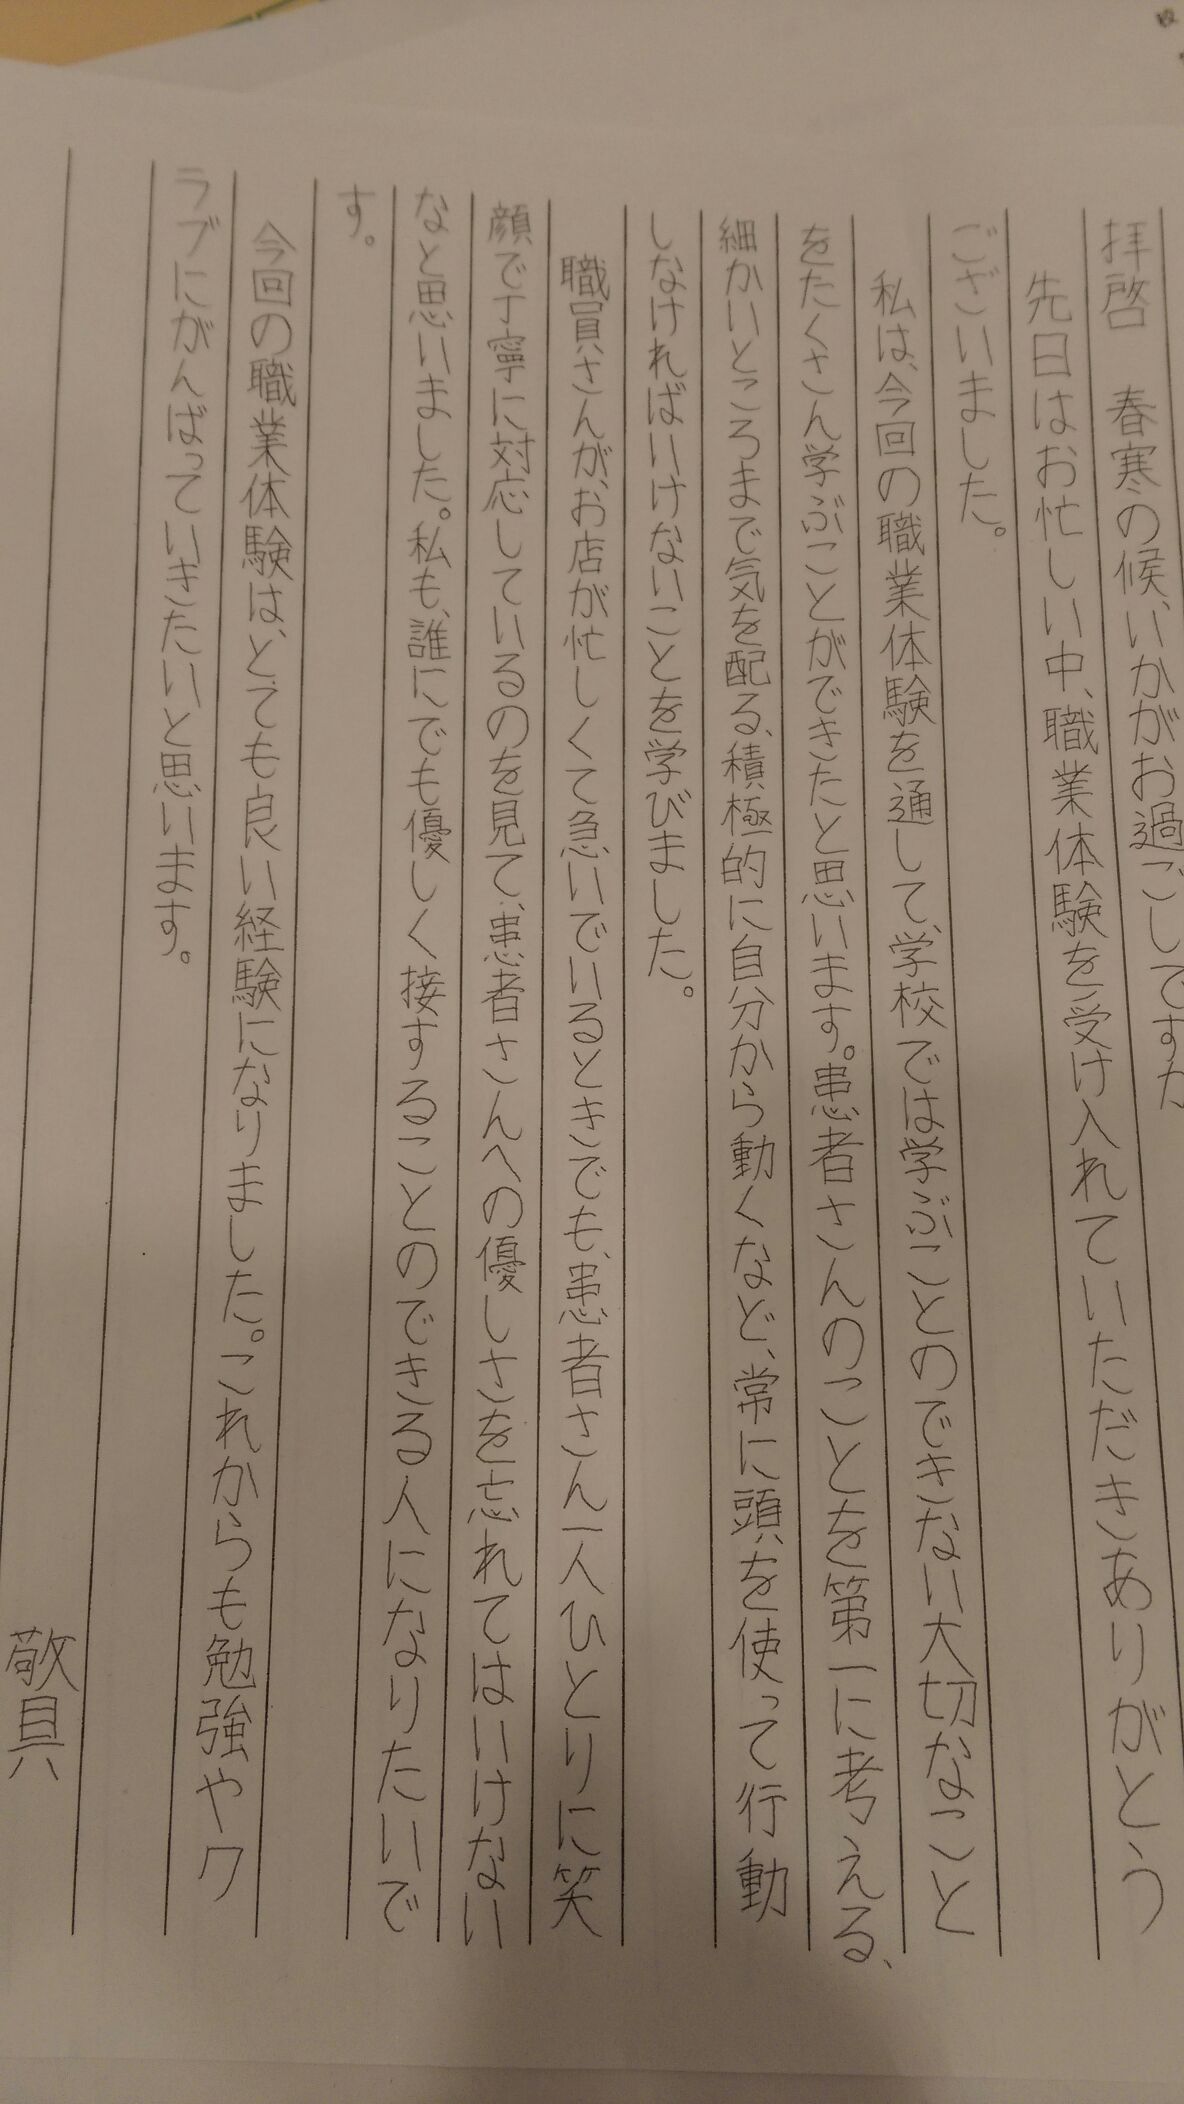 拝啓　春寒の候、いかがお過ごしですか
先日はお忙しい中、職業体験を受け入れていただきありがとう
ございました。
私は、今回の職業体験を通して、学校では学ぶことのできない大切なこと
をたくさん学ぶことができたと思います。患者さんのことを第一に考える、
細かいところまで気を配る、積極的に自分から動くなど、常に頭を使って行動
しなければいけないことを学びました。
職員さんが、お店が忙しくて急いでいるときでも、患者さん一人ひとりに笑
顔で丁寧に対応しているのを見て、患者さんへの優しさを忘れてはいけない
なと思いました。私も、誰にでも優しく接することのできる人になりたいで
す。
今回の職業体験は、とても良い経験になりました。これからも勉強やク
ラブにがんばっていきたいと思います。
敬具